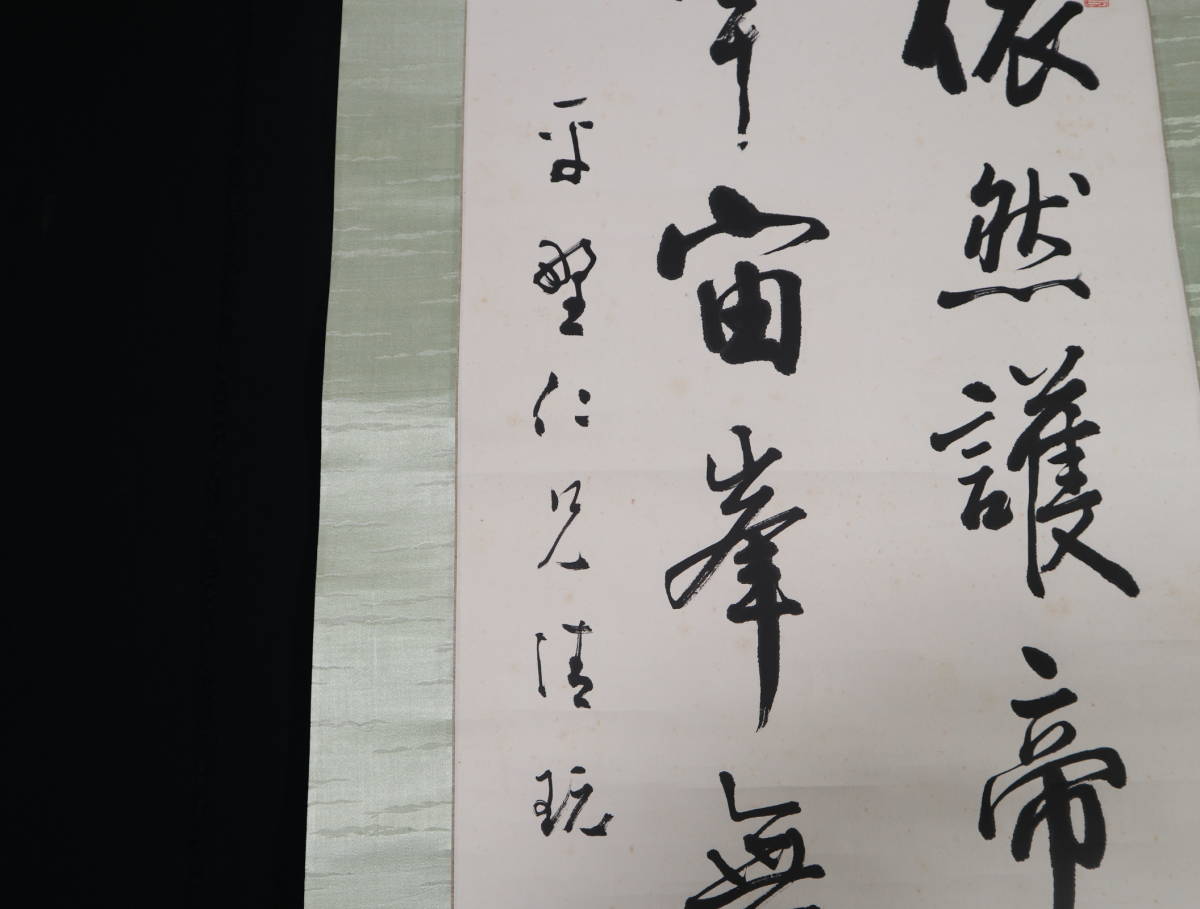 依然護帝
宙峯無
野仁兄清玩